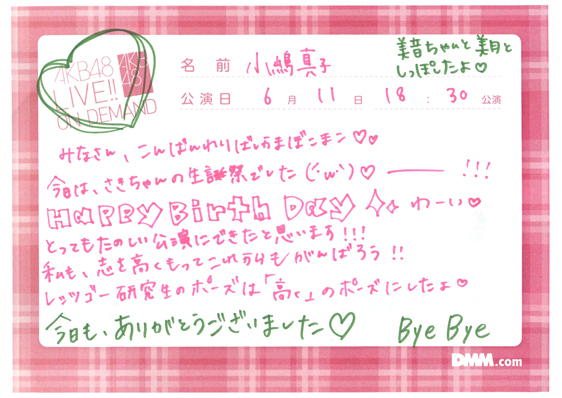 AKB48
LIVE!!
ON DEMAND
AKB
48
名前 小嶋真子
美音ちゃんと美月と
しっぽたよ♡
公演日 6月11日 18:30公演
みなさん、こんばんわりばしおまぼこまこ♡♡
今日は、さきちゃんの生誕祭でした(´ω`)♡ーーー!!!
Happy Birth Day わーい♡
とってもたのしい公演にできたと思います!!!
私も、志を高くもってこれからもがんばろう!!
レッツゴー研究生のポーズは「高く」のポーズにしたよ♡
今日も、ありがとうございました♡ Bye Bye
DMM.com